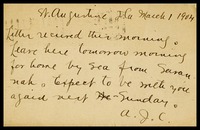 St. Augustine, Fla March 1 1904
Letter recived this morning.
Leave here tomorrow morning
for home by sea from Savan
nah. Expect to be with you
again next Sunday.
A. J. C.